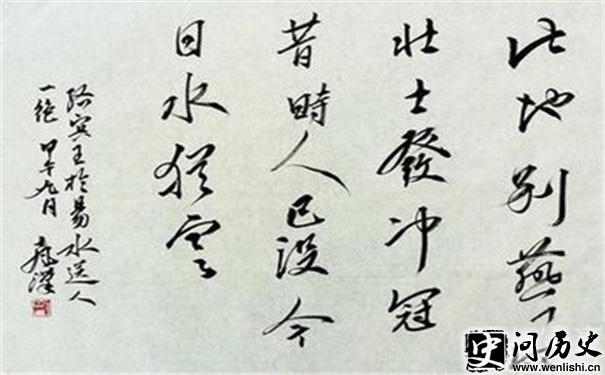 此地别燕
壮士發冲冠
昔時人已没今
日水猶寒
駱賓王於易水送人
一绝 甲午九月
问历史
www.wenlishi.cn